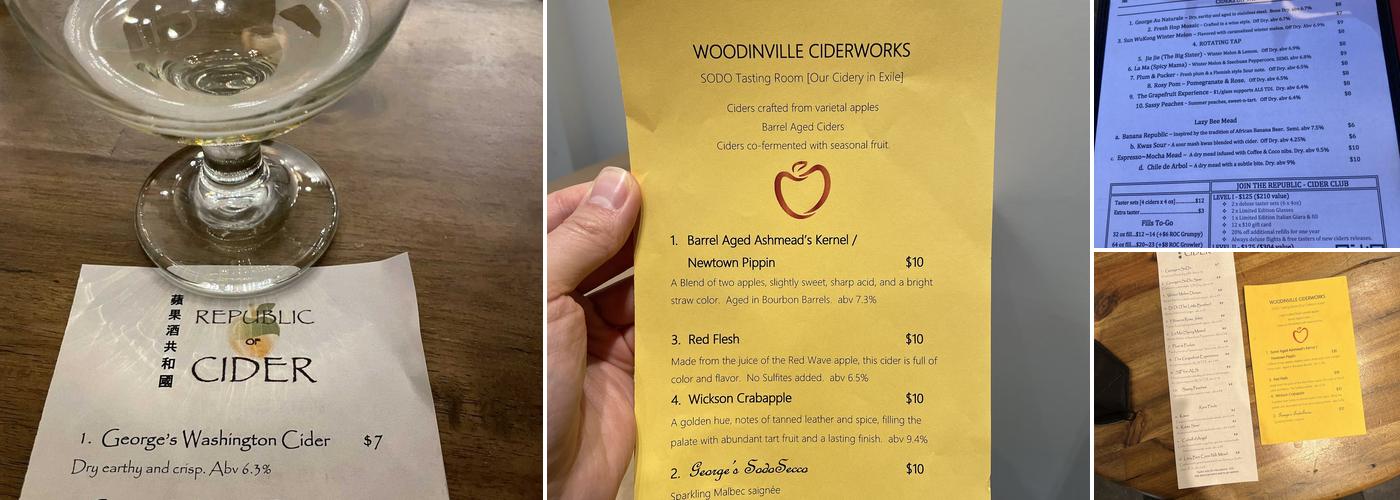 蘋果酒共和國
REPUBLIC
OF
CIDER
1. George's Washington Cider $7
Dry earthy and crisp. Abv 6.3%
WOODINVILLE CIDERWORKS
SODO Tasting Room [Our Cidery in Exile]
Ciders crafted from varietal apples
Barrel Aged Ciders
Ciders co-fermented with seasonal fruit.
1. Barrel Aged Ashmead's Kernel /
Newtown Pippin $10
A Blend of two apples, slightly sweet, sharp acid, and a bright
straw color. Aged in Bourbon Barrels. abv 7.3%
3. Red Flesh $10
Made from the juice of the Red Wave apple, this cider is full of
color and flavor. No Sulfites added. abv 6.5%
4. Wickson Crabapple $10
A golden hue, notes of tanned leather and spice, filling the
palate with abundant tart fruit and a lasting finish. abv 9.4%
2. George's SodoSecco $10
Sparkling Malbec saignée
1. George Au Naturale – Dry, earthy and aged in stainless steel. Bone Dry. Abv 6.7% $8
2. Fresh Hop Mosaic – Crafted in a wine style. Off Dry. abv 6.7% $7
3. Sun WuKong Winter Melon – Flavored with caramelized winter melon. Off Dry. Abv 6.9% $9
4. ROTATING TAP
5. Jia Jie (The Big Sister) – Winter Melon & Lemon. Off Dry. abv 6.9% $8
6. La Ma (Spicy Mama) – Winter Melon & Szechuan Peppercorn. SEMI. abv 6.8% $9
7. Plum & Pucker – Fresh plum & a Flemish style Sour note. Off Dry. abv 6.5% $8
8. Rosy Pom – Pomegranate & Rose. Off Dry. abv 6.5% $8
9. The Grapefruit Experience – $1/glass supports ALS TDI. Dry. abv 6.4% $8
10. Sassy Peaches – Summer peaches, sweet-n-tart. Off Dry. abv 6.4% $8
Lazy Bee Mead
a. Banana Republic – Inspired by the tradition of African Banana Beer. Semi. abv 7.5% $6
b. Kvas Sour – A sour mash kvas blended with cider. Off Dry. abv 4.25% $6
c. Espresso–Mocha Mead – A dry mead infused with Coffee & Coco nibs. Dry. abv 9.5% $10
d. Chile de Arbol – A dry mead with a subtle bite. Dry. abv 9% $10
Taster sets [4 ciders x 4 oz] $12
Extra taster $3
Fills To-Go
32 oz fill...$12–14 (+$6 ROC Grumpy)
64 oz fill...$20–23 (+$8 ROC Growler)
JOIN THE REPUBLIC - CIDER CLUB
LEVEL I - $125 ($210 value)
2 x deluxe taster sets (6 x 4oz)
2 x Limited Edition Glasses
1 x Limited Edition Italian Giara & fill
12 x $10 gift card
20% off additional refills for one year
Always deluxe flights & free tasters of new ciders releases.
CIDER
WOODINVILLE CIDERWORKS
1. Barrel Aged Ashmead's Kernel /
Newtown Pippin
3. Red Flesh
4. Wickson Crabapple
2. George's SodoSecco